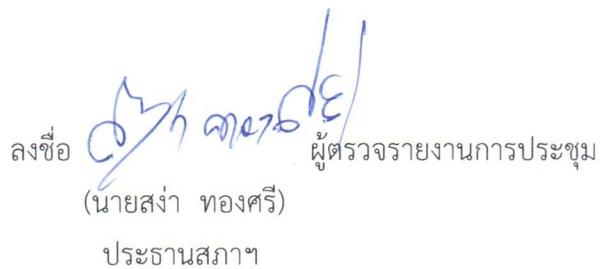 ลงชื่อ ผู้ตรวจรายงานการประชุม
(นายสง่า ทองศรี)
ประธานสภาฯ